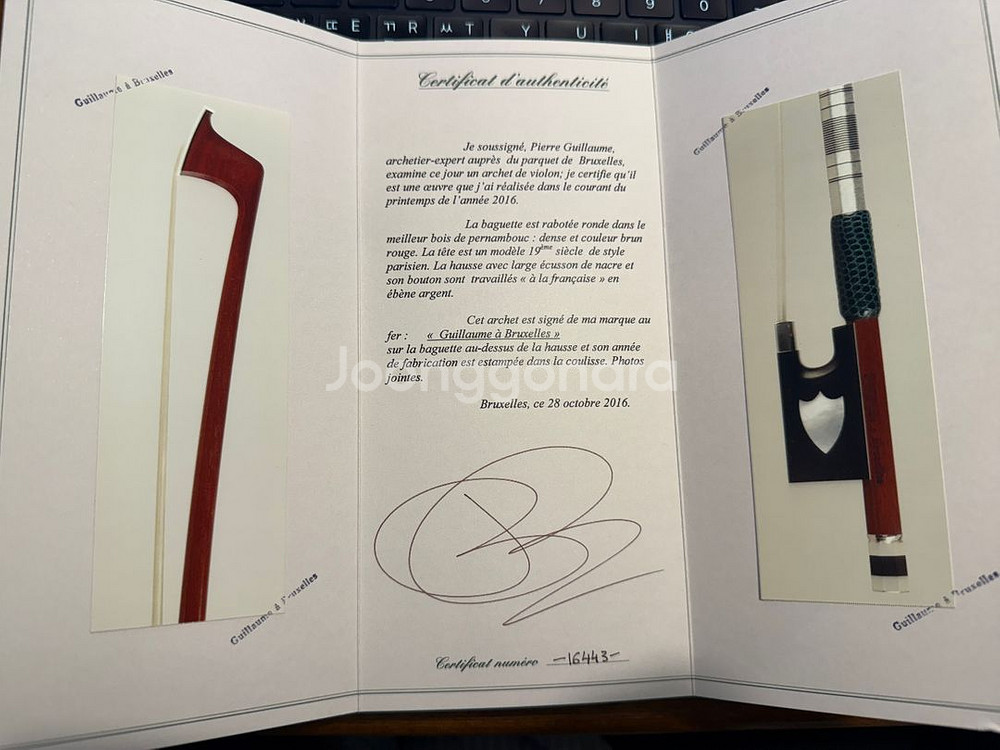 Guillaume à Bruxelles
Certificat d'authenticité
Je soussigné, Pierre Guillaume,
archetier-expert auprès du parquet de Bruxelles,
examine ce jour un archet de violon; je certifie qu'il
est une œuvre que j'ai réalisée dans le courant du
printemps de l'année 2016.
La baguette est rabotée ronde dans le
meilleur bois de pernambouc : dense et couleur brun
rouge. La tête est un modèle 19ème siècle de style
parisien. La hausse avec large écusson de nacre et
son bouton sont travaillés « à la française » en
ébène argent.
Cet archet est signé de ma marque au
fer : « Guillaume à Bruxelles »
sur la baguette au-dessus de la hausse et son année
de fabrication est estampée dans la coulisse. Photos
jointes.
Bruxelles, ce 28 octobre 2016.
Certificat numéro -16443-
Guillaume à Bruxelles
Guillaume à Bruxelles
Guillaume à Bruxelles
Joonggonara
E R T Y U I
7 8 9 0